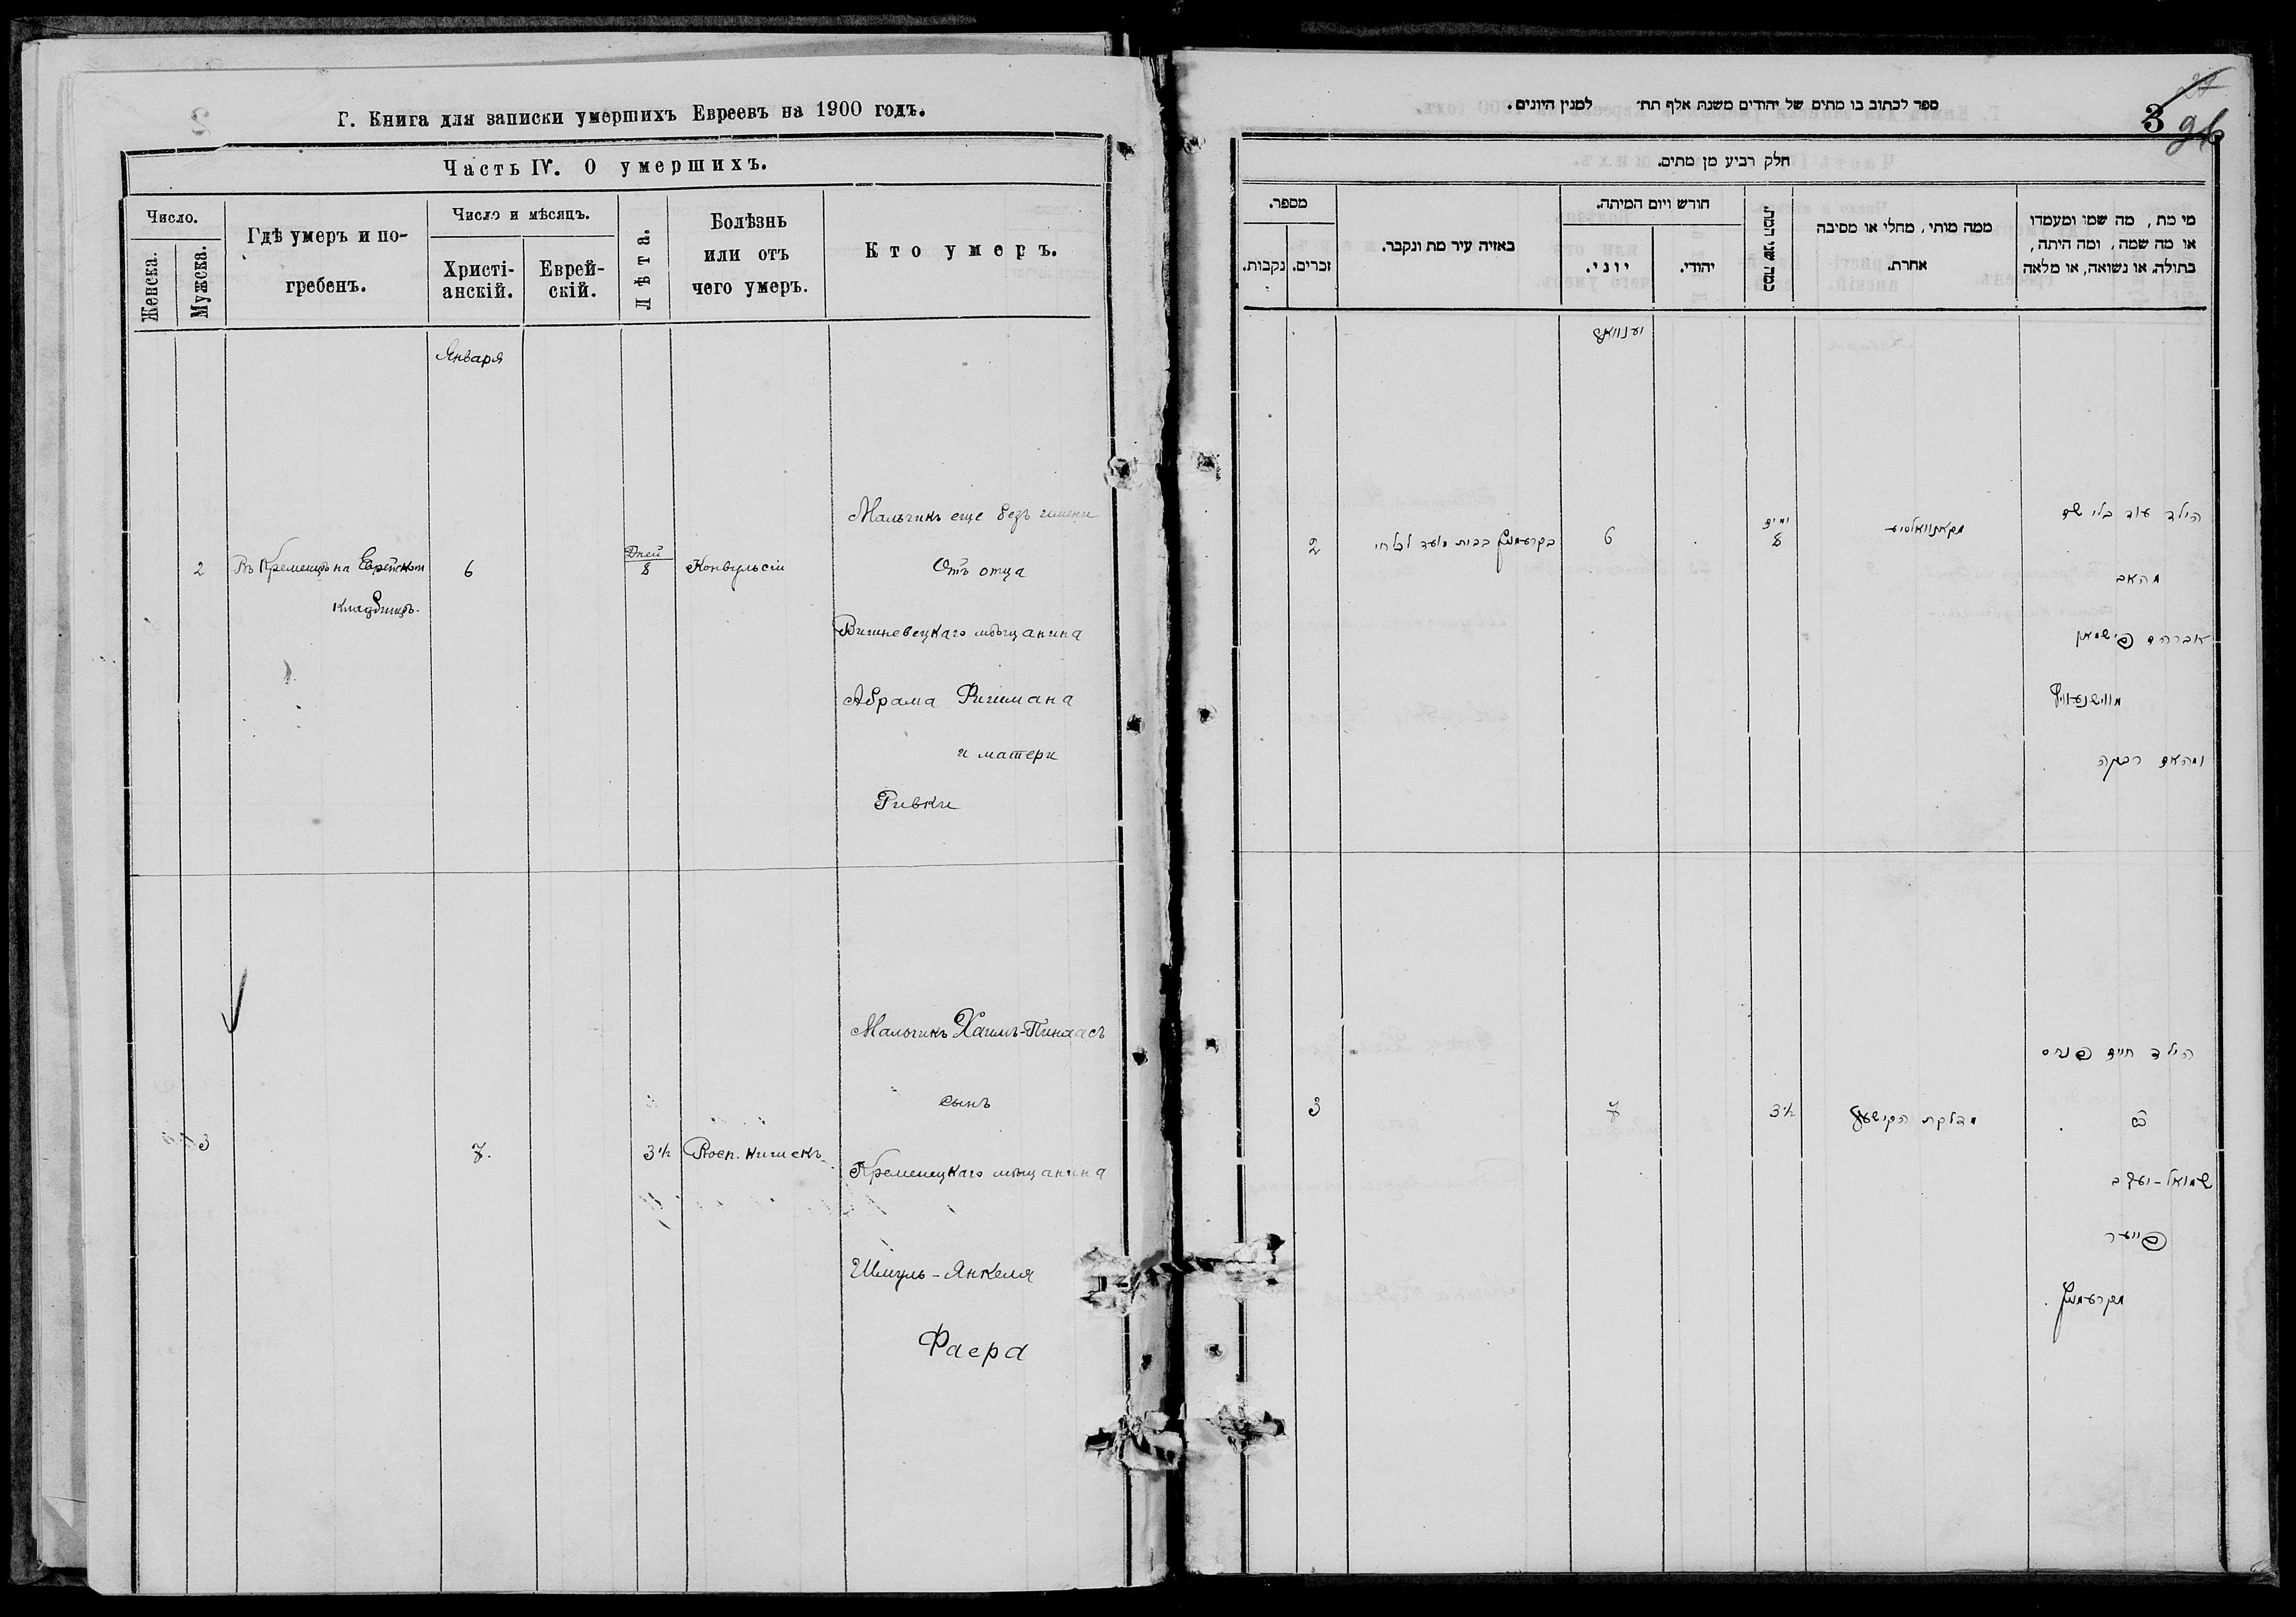 Г. Книга для записки умершихъ Евреевъ на 1900 годъ.
Часть IV. О умершихъ.
Число.
Женска.
Мужска.
Гдѣ умеръ и по-
гребенъ.
Число и мѣсяцъ.
Христі-
анскій.
Еврей-
скій.
Лѣта.
Болѣзнь
или отъ
чего умеръ.
Кто умеръ.
Января
Мальчикъ еще безъ имени
2 Въ Кременцѣ на Еврейском 6 Дней 8 Конвульсіи Отъ отца
кладбищѣ.
Вишневецкаго мѣщанина
Абрама Фишмана
и матери
Ривки
Мальчикъ Хаимъ-Пинхасъ
сынъ
3 7. 3½ Восп. кишекъ
Кременецкаго мѣщанина
Шмуль-Янкеля
Фаера
ספר לכתוב בו מתים של יהודים משנת אלף תת״ למנין היונים.
3
חלק רביע מן מתים.
מי מת, מה שמו ומעמדו
או מה שמה, ומה היתה,
בתולה, או נשואה, או מלאה
ממה מותי, מחלי או מסיבה
אחרת.
כמה שני המת.
חורש ויום המיתה.
יהודי.
יוני.
באיזה עיר מת ונקבר.
מספר.
זכרים.
נקבות.
יענוואר
הילד עוד בלי שם
מקאנוואלסיע
ימים
8
6
בקרעמניץ בבית מועד לכל חי
2
מהאב
אברהם פישמאן
מווישנעוויץ
ומהאם רבקה
הילד חיים פנחס
מדלקת הקישעק
3½
7
3
בן
שמואל-יעקב
פייער
מקרעמניץ